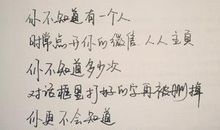 你不知道有一个人
时常点开你的微信 人人主页
你不知道多少次
对话框里打好的字再被删掉
你更不会知道